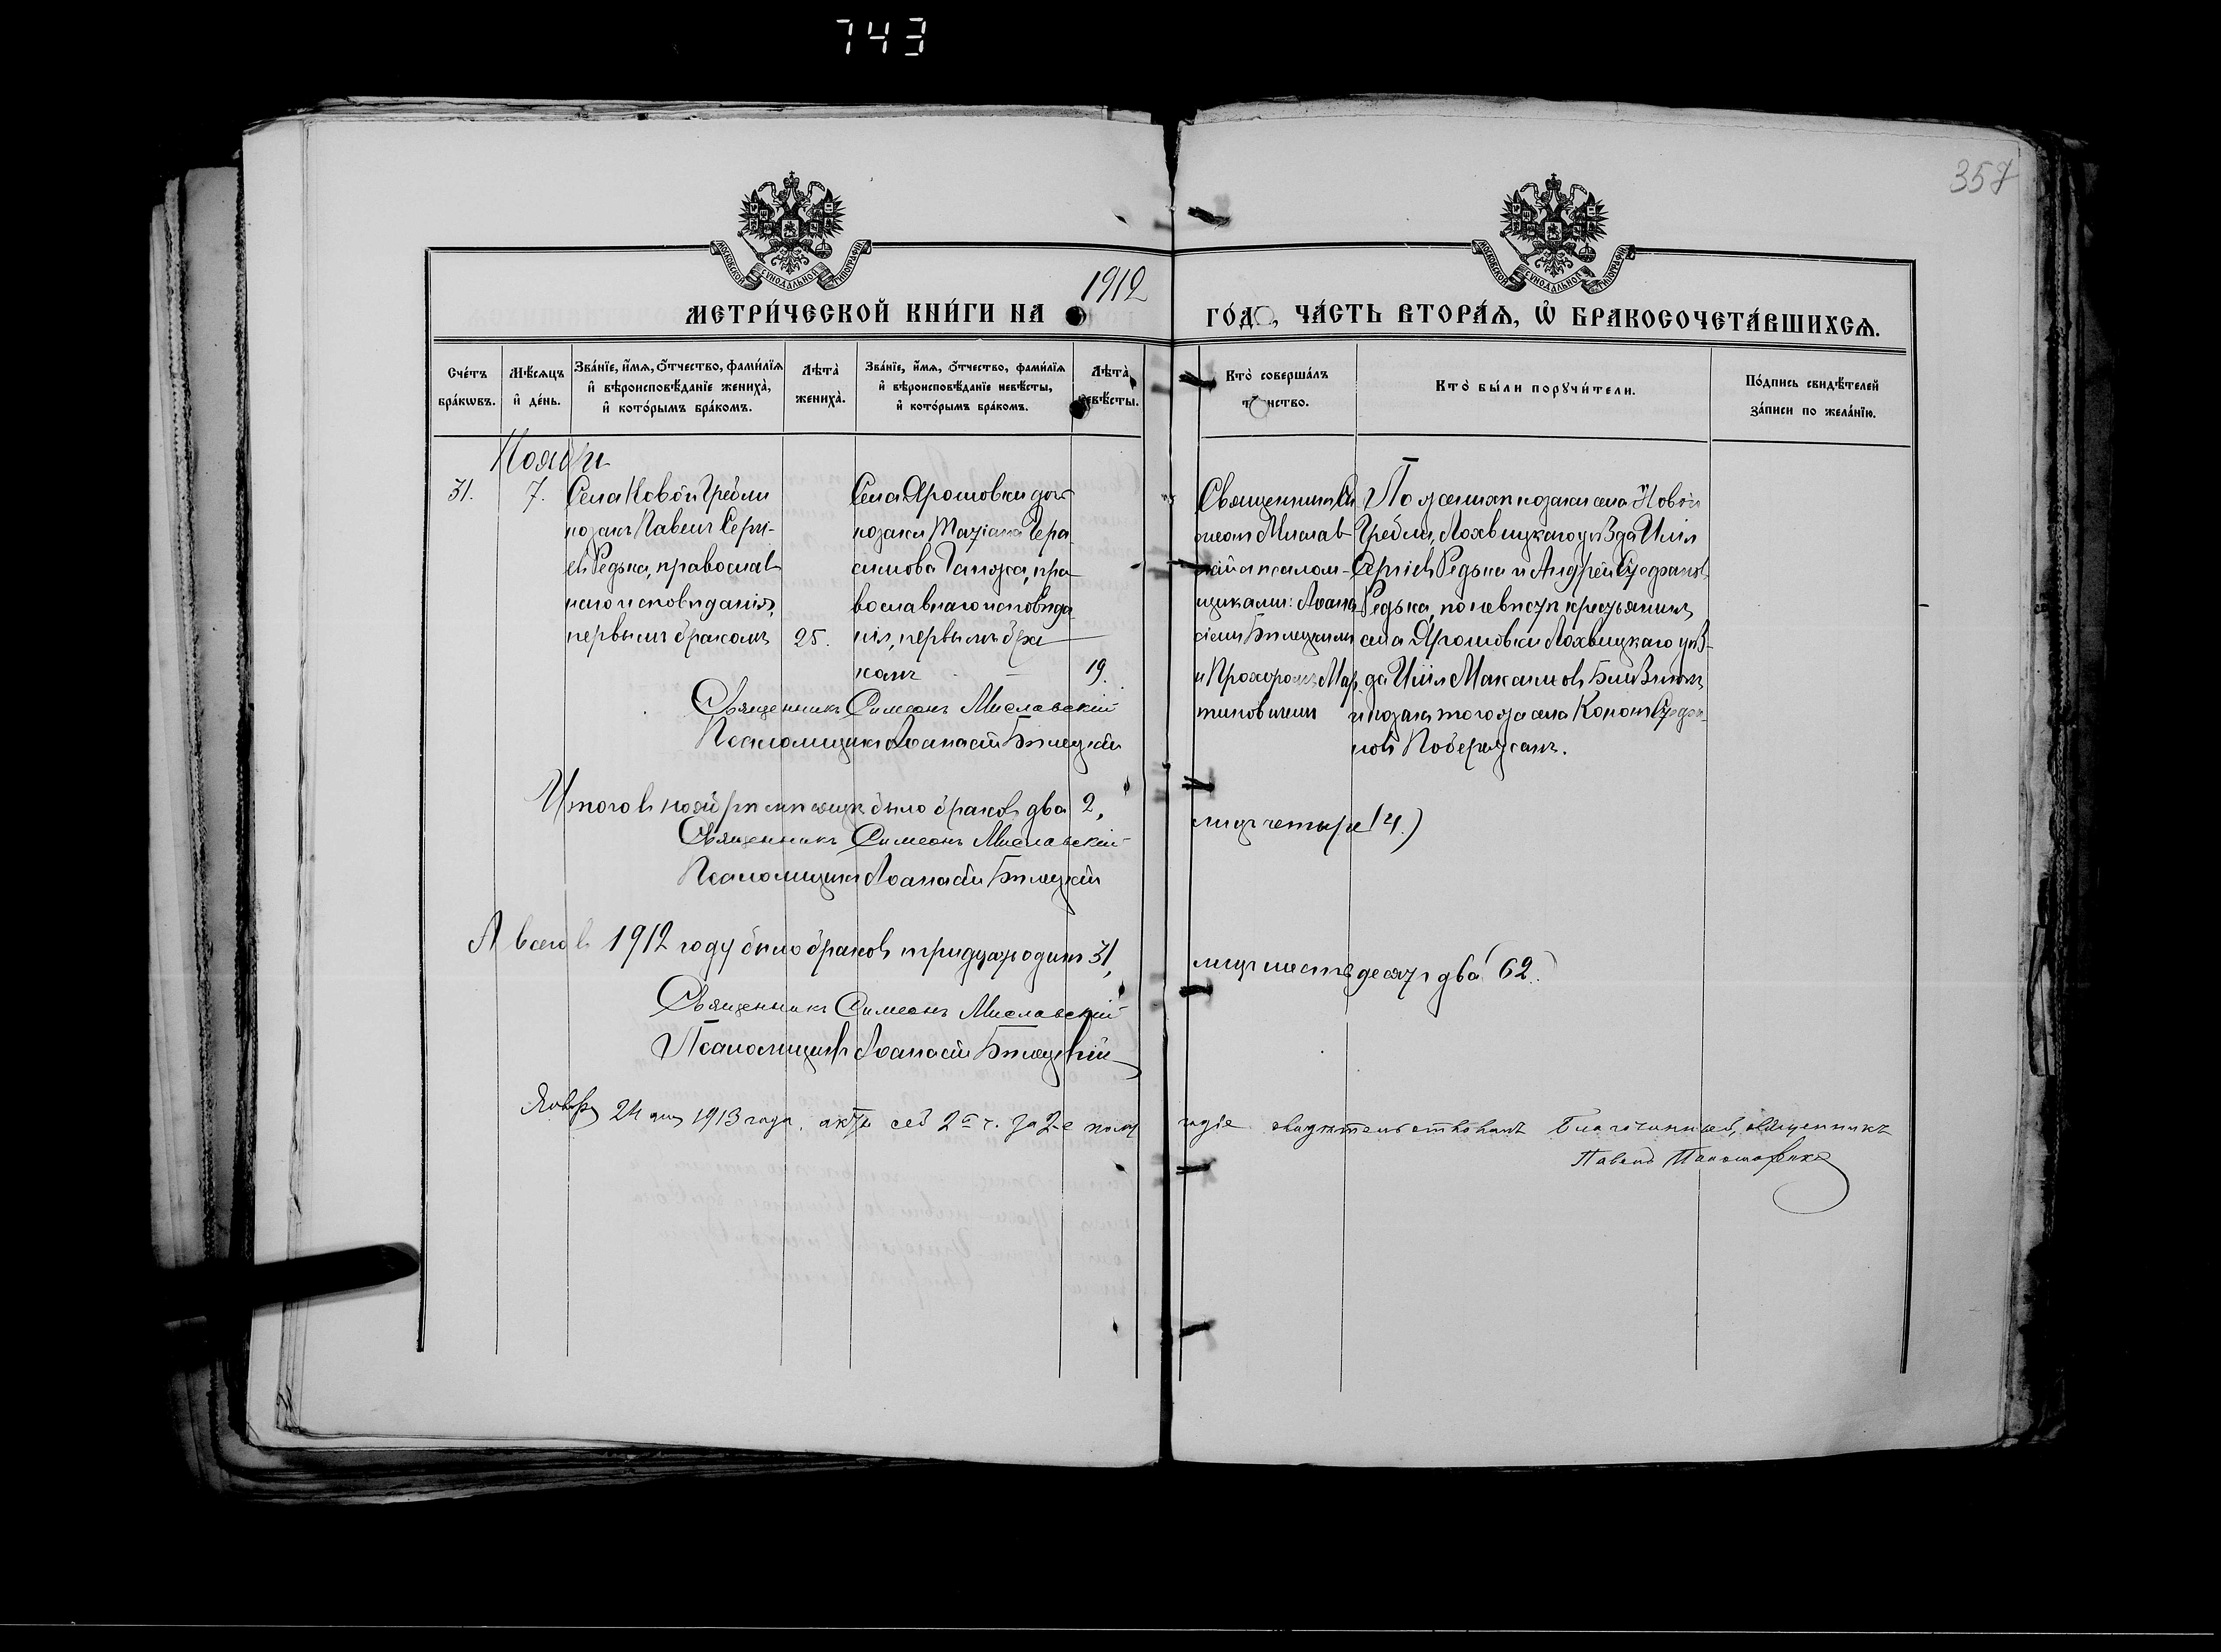 743
357
МОСКОВСКОЙ СѴНОДАЛЬНОЙ ТИПОГРАФІИ
МОСКОВСКОЙ СѴНОДАЛЬНОЙ ТИПОГРАФІИ
1912
МЕТРИ́ЧЕСКОЙ КНИ́ГИ НА ГО́Д, ЧА́СТЬ ВТОРА́Ѧ, Ѽ БРАКОСОЧЕТА́ВШИХСѦ.
Сче́тъ бра́кѡвъ.
Мѣ́сѧцъ и҆ де́нь.
Зва́нїе, и҆́мѧ, ѻ҆́тчество, фами́лїѧ
и҆ вѣроисповѣ́данїе жениха̀,
и҆ кото́рымъ бра́комъ.
Лѣта̀ жениха̀.
Зва́нїе, и҆́мѧ, ѻ҆́тчество, фами́лїѧ
и҆ вѣроисповѣ́данїе невѣ́сты,
и҆ кото́рымъ бра́комъ.
Лѣта̀ невѣ́сты.
Кто̀ соверша́лъ
та́инство.
Кто̀ бы́ли порꙋчи́тели.
По́дпись свидѣ́телей
за́писи по жела́нїю.
Ноября
31.
7.
Села Новой Гребли
козакъ Павелъ Сергі-
евъ Редька, православ
наго исповѣданія,
первымъ бракомъ
25.
Села Ярошовки дочь
козака Татіана Гера-
симова, пра
вославнаго исповѣда
нія, первымъ бра
комъ
19.
Священникъ Си
меонъ Мислав
скій и псалом-
щиками: Аѳана
сіемъ Бѣлецкимъ
и Прохоромъ Мар
тиновичемъ
По женихѣ козаки села Новой
Гребли, Лохвицкаго уѣзда Илія
Сергіевъ Редька и Андрей
Редька, по невѣстѣ крестьянинъ
села Ярошовки Лохвицкаго уѣз-
да Илія Максимовъ
и козакъ того же села Кононъ
новъ Побережсакъ.
Священникъ Симеонъ Миславскій
Псаломщикъ Аѳанасій Бѣлецкій
Итого въ ноябрѣ мѣсяцѣ было браковъ два 2,
лицъ четыре (4.)
Священникъ Симеонъ Миславскій
Псаломщикъ Аѳанасій Бѣлецкій
А всего въ 1912 году было браковъ тридцать одинъ 31,
лицъ шестьдесятъ два (62.)
Священникъ Симеонъ Миславскій
Псаломщикъ Аѳанасій Бѣлецкій
Января 24 дня 1913 года, акты сей 2ой ч. за 2-е полу
годіе свидѣтельствовалъ Благочинный, священникъ
Павелъ Пономаренко